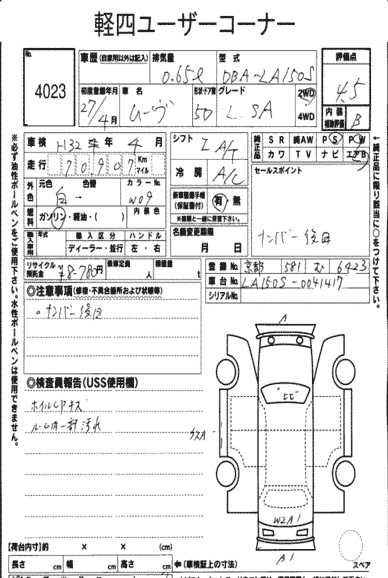 軽四ユーザーコーナー
No.
4023
車歴 (自家用以外は記入)
排気量 0.65ℓ
型式 DBA-LA150S
評価点 4.5
初度登録年月 27/4月
車名 ムーヴ
形状・ドア数 5D
グレード L.SA
2WD
4WD
内装 補助評価 B
車検 H32年 4月
走行 70907 Km マイル
シフト IA/T
冷房 A/C
純正品
SR 純AW PS PW
カワ TV ナビ エアB
セールスポイント
ナンバー後日
外色 元色 白
色替
カラー No. W09
内装色
燃料 ガソリン・軽油・( )
新車整備手帳 (保証書付) 有 無
※書類と一緒に提出下さい。
名義変更期限 月 日
年式
輸入区分 ディーラー・並行
ハンドル 左・右
リサイクル預託金 ¥8,780円
乗車定員 人
積載量 t
登録No. 京都 581 む 6423
車台No. LA150S-0041417
シリアルNo.
◎注意事項 (修復・不具合箇所および状態等)
・ナンバー後日
◎検査員報告(USS使用欄)
ホイルCPキズ
ルーム内一部汚れ
W2A1
A1
スペア
【荷台内寸】 約 × × (cm)
長さ cm 幅 cm 高さ cm ←(車検証上の寸法)
※必ず油性ボールペンをご使用下さい。水性ボールペンは使用できません。
※純正品に限り該当に○をつけて下さい。